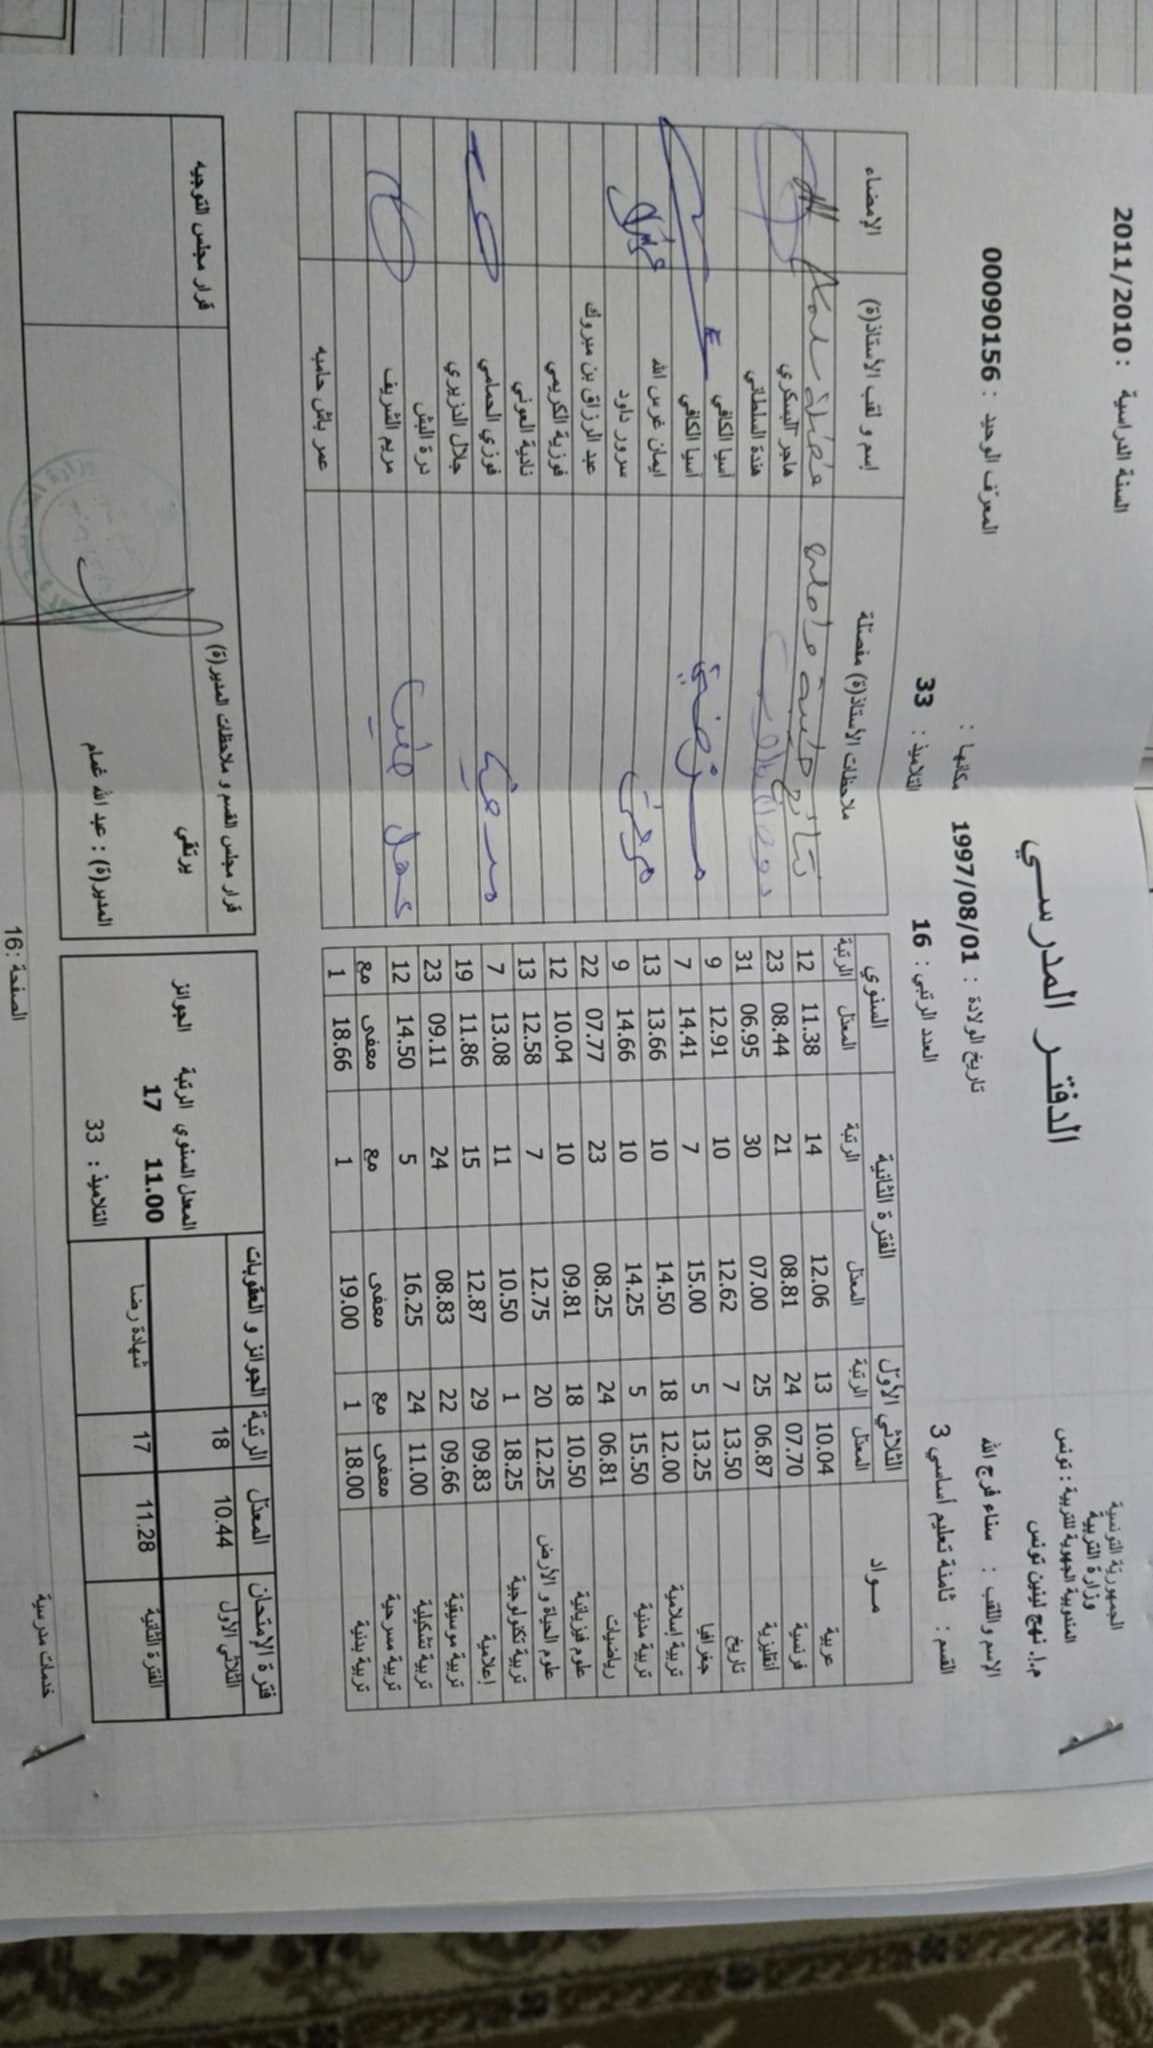 الجمهورية التونسية
وزارة التربية
المندوبية الجهوية للتربية : تونس
م.إ. نهج لينين تونس
الدفتر المدرسي
السنة الدراسية : 2011/2010
الإسم واللقب : سناء فرج الله
تاريخ الولادة : 1997/08/01 مكانها :
المعرّف الوحيد : 00090156
القسم : ثامنة تعليم أساسي 3
العدد الرتبي : 16
التلاميذ : 33
مـــواد الثلاثي الأوّل الفترة الثانية السنوي ملاحظات الأستاذ(ة) مفصّلة إسم و لقب الأستاذ(ة) الإمضاء
المعدّل الرتبة المعدّل الرتبة المعدّل الرتبة
عربية 10.04 13 12.06 14 11.38 12 نتائج طيبة
فرنسية 07.70 24 08.81 21 08.44 23 هاجر البسكري
أنقليزية 06.87 25 07.00 30 06.95 31 هندة السلطاني
تاريخ 13.50 7 12.62 10 12.91 9 آسيا الكافي
جغرافيا 13.25 5 15.00 7 14.41 7 آسيا الكافي
تربية إسلامية 12.00 18 14.50 10 13.66 13 ايمان غرس الله
تربية مدنية 15.50 5 14.25 10 14.66 9 سرور داود
رياضيات 06.81 24 08.25 23 07.77 22 عبد الرزاق بن مبروك
علوم فيزيائية 10.50 18 09.81 10 10.04 12 فوزية الكريمي
علوم الحياة و الأرض 12.25 20 12.75 7 12.58 13 نادية العوني
تربية تكنولوجية 18.25 1 10.50 11 13.08 7 فوزي الحمامي
إعلامية 09.83 29 12.87 15 11.86 19 جلال الدزيري
تربية موسيقية 09.66 22 08.83 24 09.11 23 درة البش
تربية تشكيلية 11.00 24 16.25 5 14.50 12 عمل طيب مريم الشريف
تربية مسرحية معفى مع معفى مع معفى مع
تربية بدنية 18.00 1 19.00 1 18.66 1 عمر باش حامبه
فترة الإمتحان المعدّل الرتبة الجوائز و العقوبات
الثلاثي الأول 10.44 18
الفترة الثانية 11.28 17 شهادة رضا
المعدل السنوي الرتبة الجوائز
11.00 17
التلاميذ : 33
قرار مجلس القسم و ملاحظات المدير(ة)
يرتقي
المدير(ة) : عبد الله غسام
قرار مجلس التوجيه
خدمات مدرسية
الصفحة :16